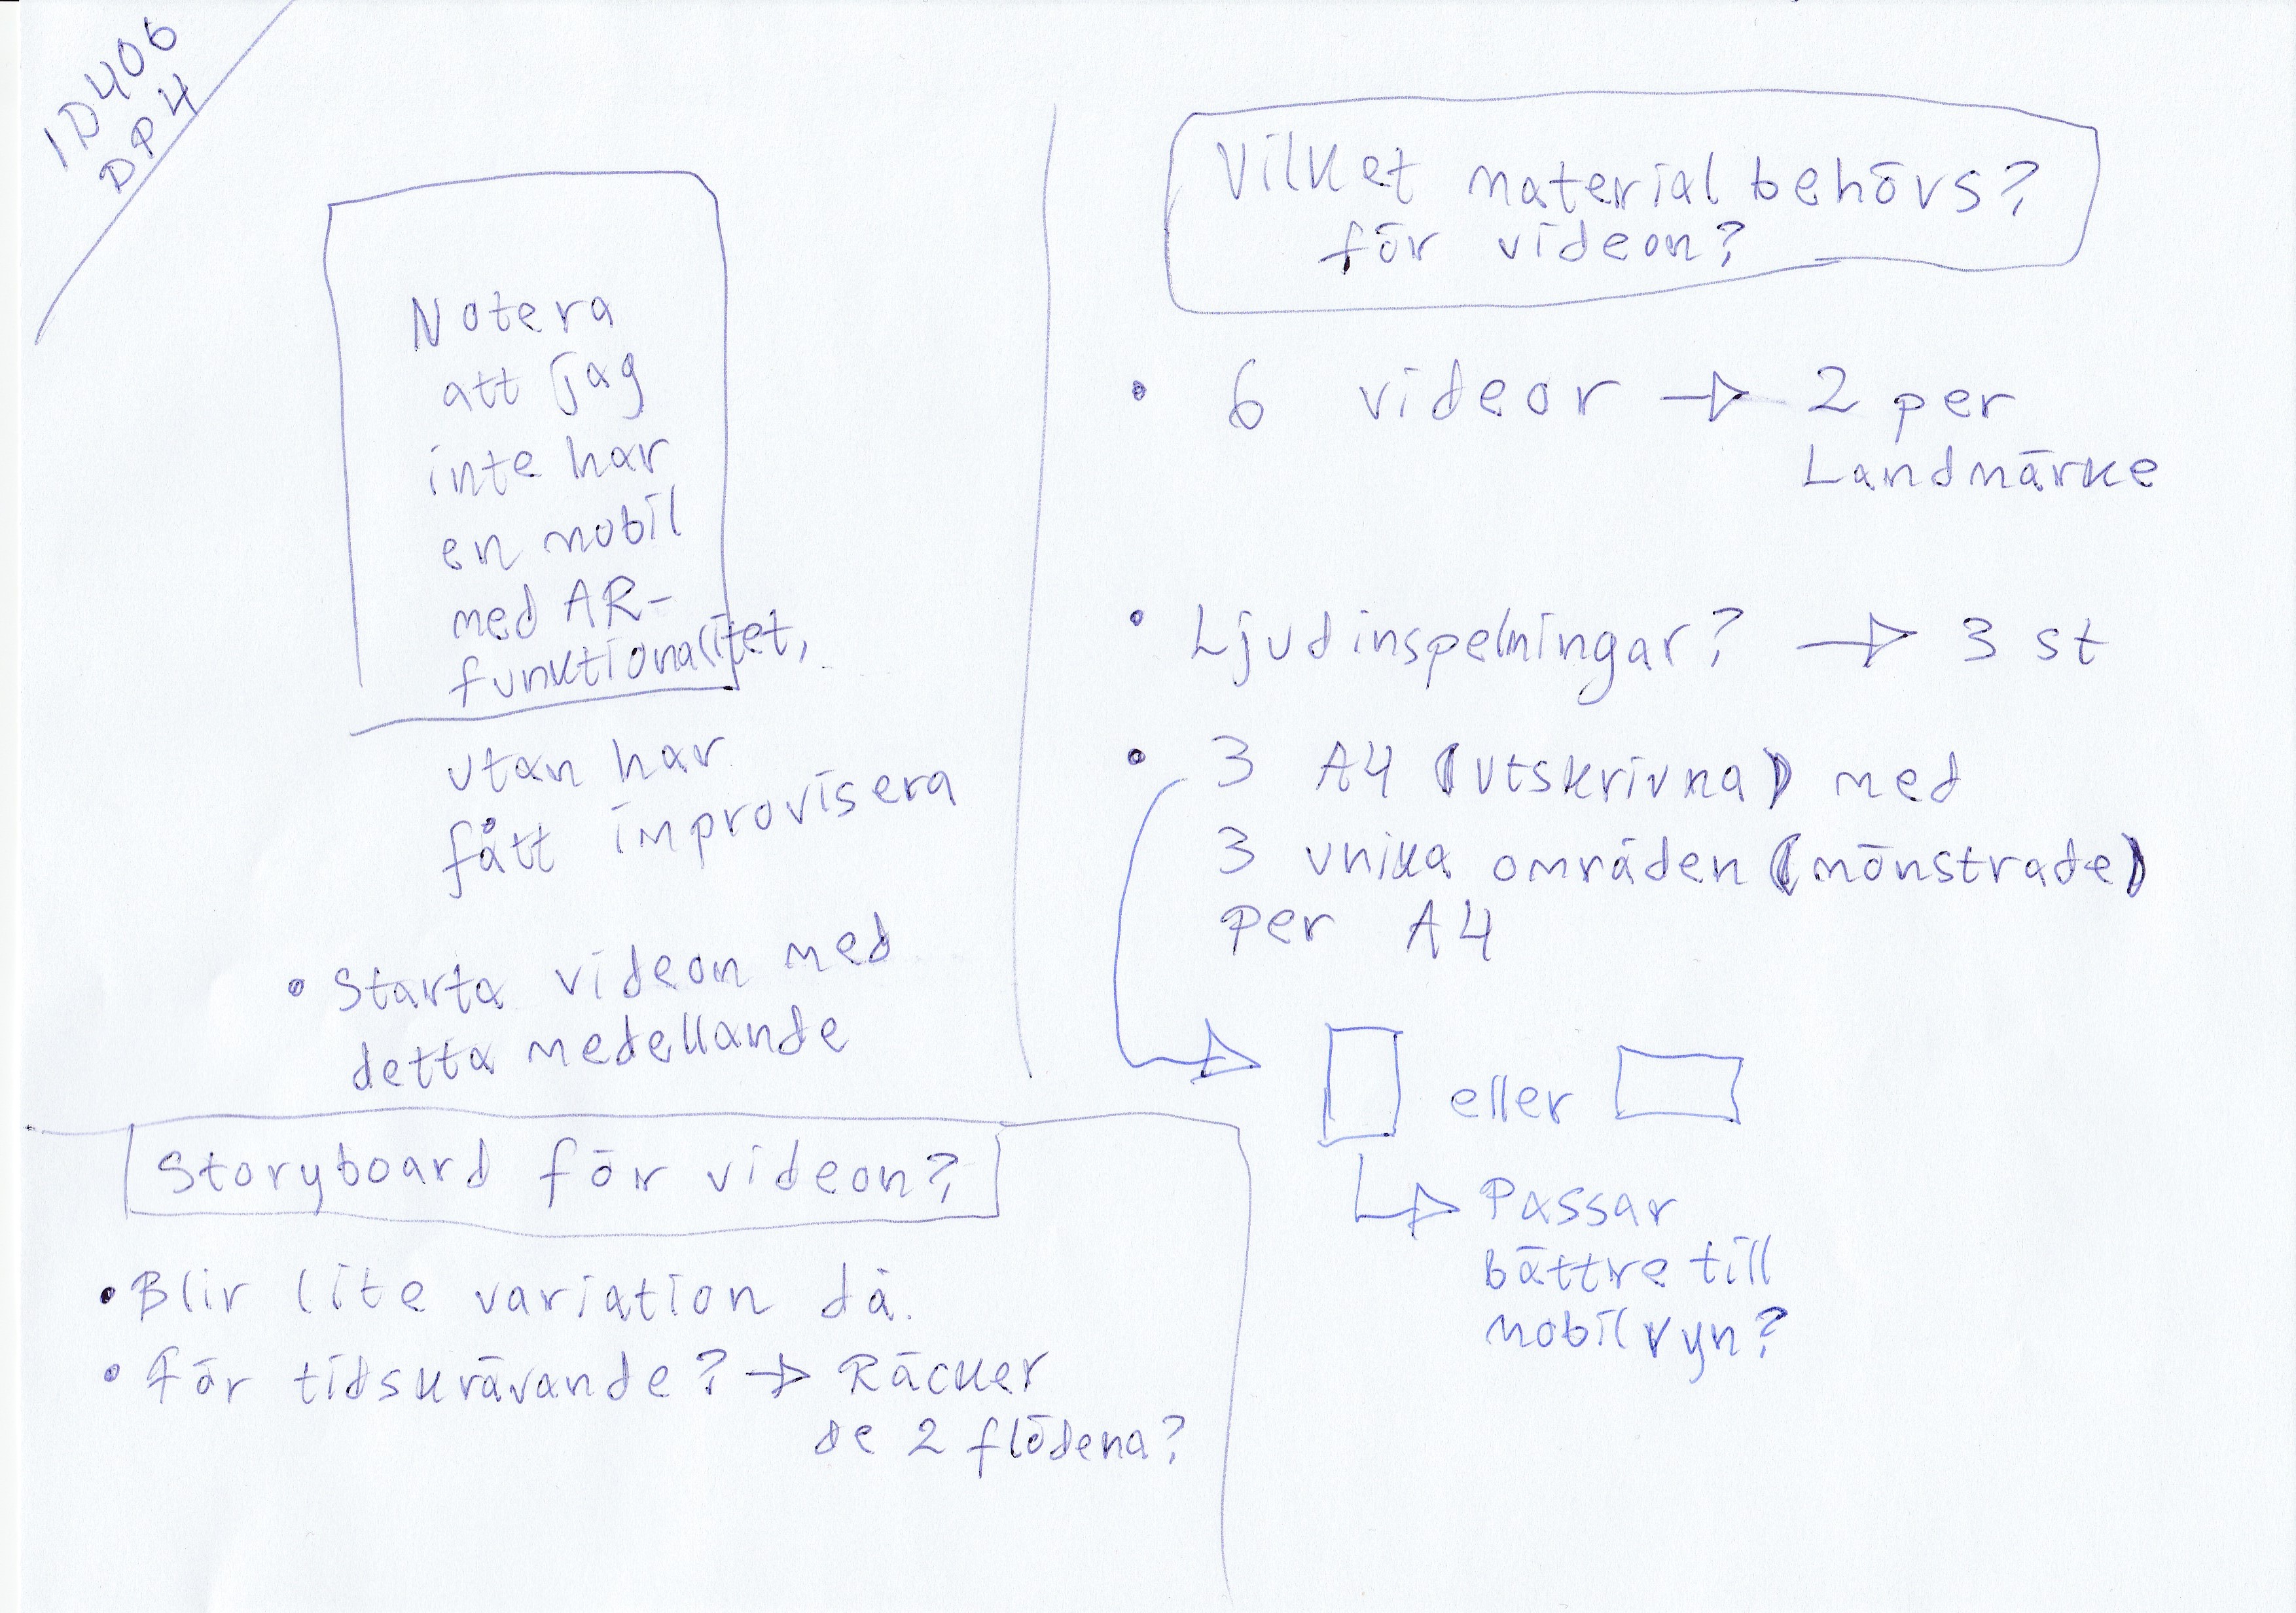 ID406
DP4
Notera
att jag
inte har
en mobil
med AR-
funktionalitet,
utan har
fått improvisera
• Starta videon med
detta medellande
Storyboard för videon?
• Blir lite variation då.
• För tidskrävande? → Räcker
de 2 flödena?
Vilket material behövs?
för videon?
• 6 videor → 2 per
Landmärke
• Ljudinspelningar? → 3 st
• 3 A4 (utskrivna) med
3 unika områden (mönstrade)
per A4
eller
Passar
bättre till
mobilvyn?